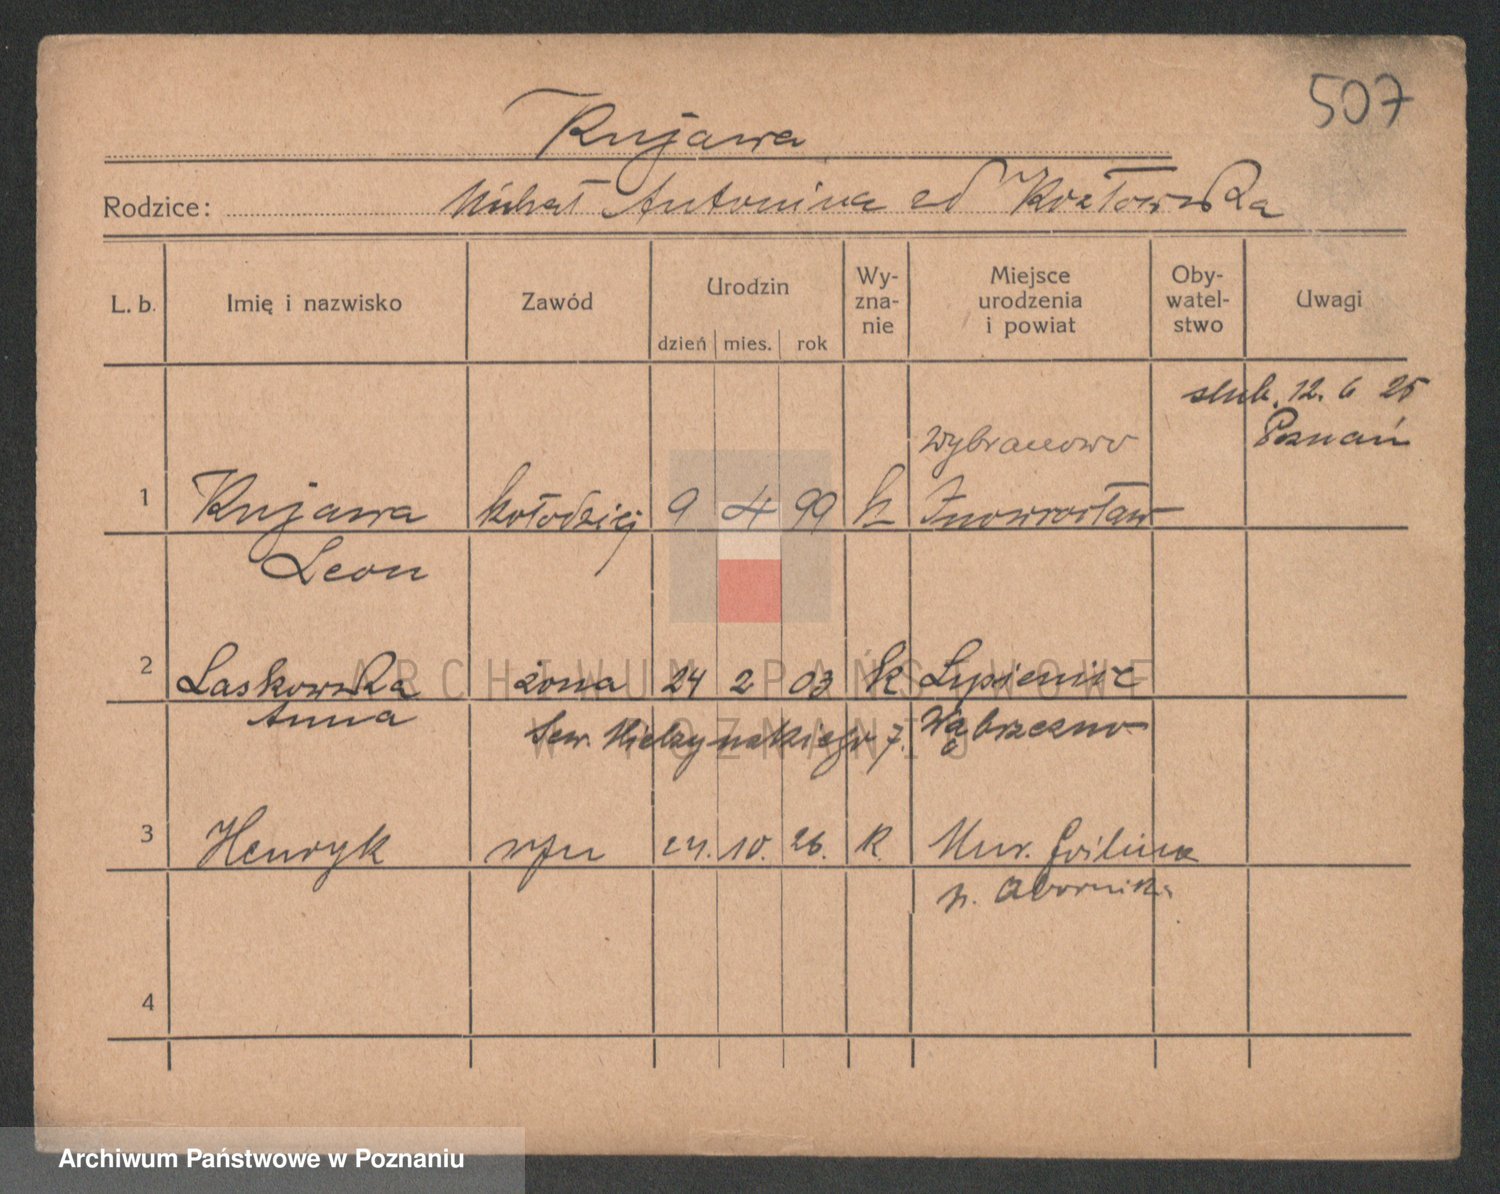 507
Kujawa
Rodzice: Michał Antonina cd Kozłowska
L. b. Imię i nazwisko Zawód Urodzin dzień mies. rok Wy- zna- nie Miejsce urodzenia i powiat Oby- watel- stwo Uwagi
ślub. 12. 6 25
Poznań
Wybranowo
1 Kujawa kołodziej 9 4 99 k Inowrocław
Leon
2 Laskowska żona 24 2 03 k Lipienic
Anna Sew. Mielżyńskiego 7. Wąbrzezno
3 Henryk syn 24. 10. 26. k. Mur. Goślina
p. Oborniki
4
ARCHIWUM PAŃSTWOWE
W POZNANIU
Archiwum Państwowe w Poznaniu